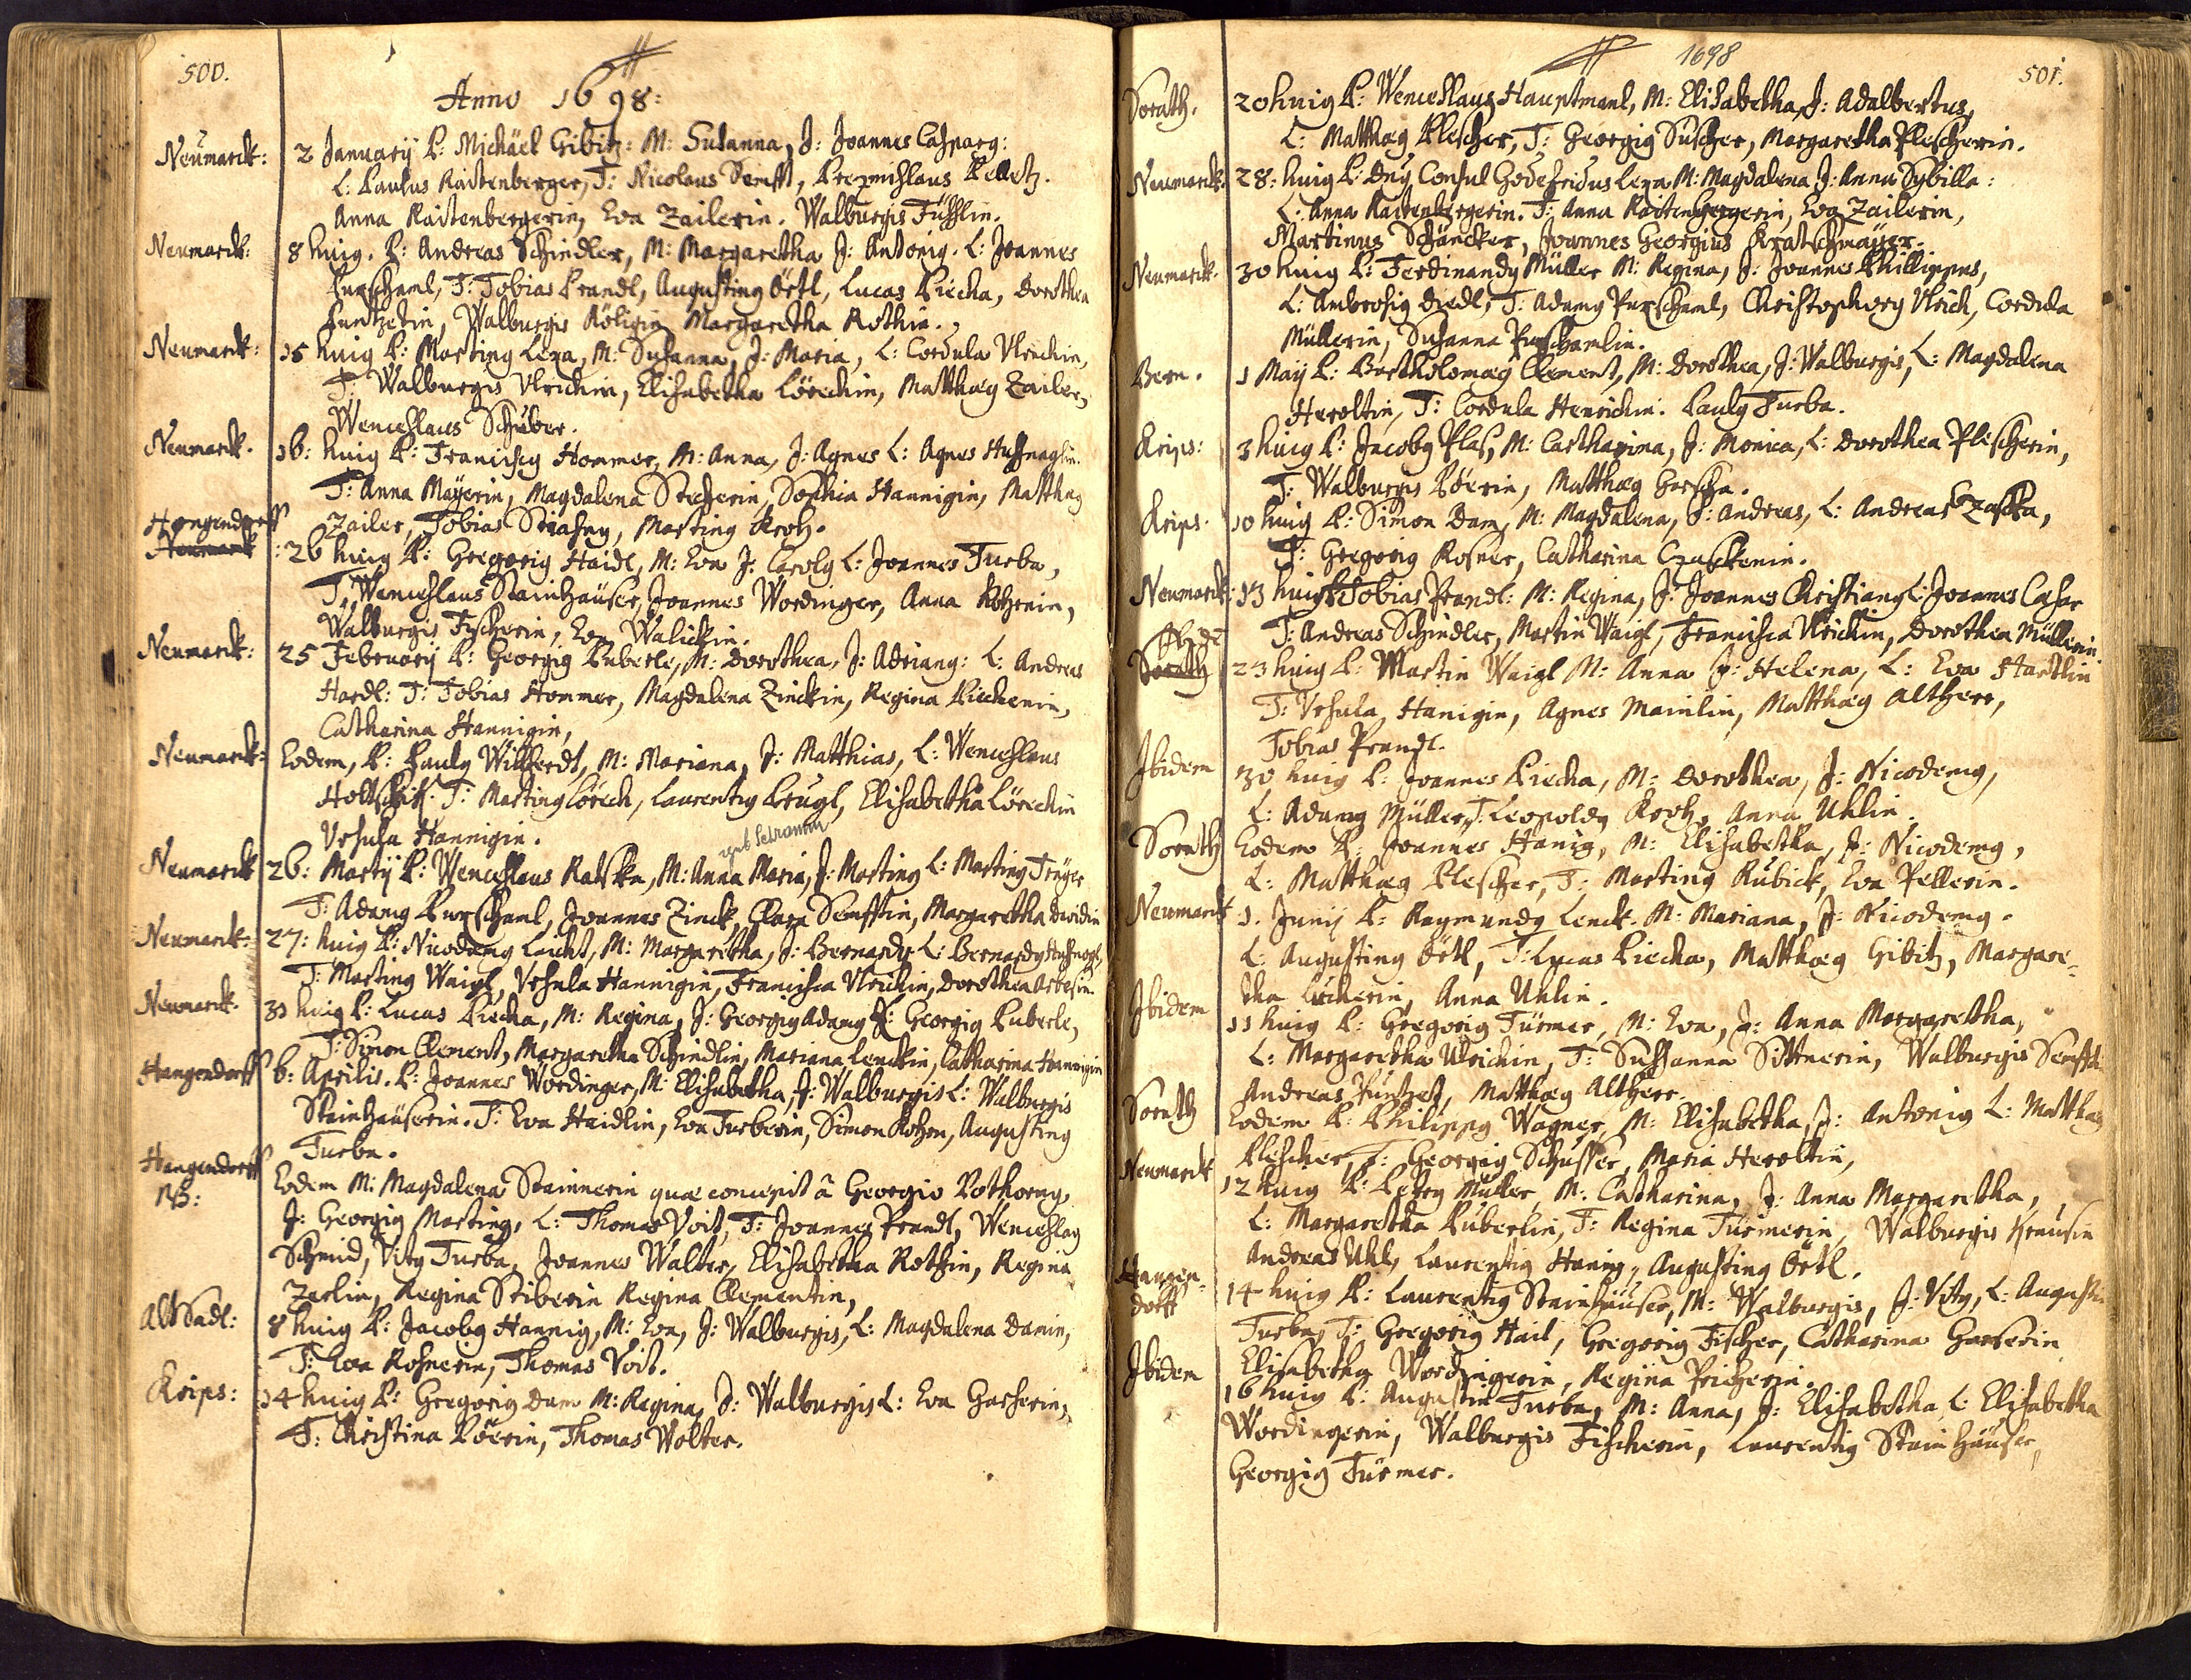 500.
Anno 1698:
Neumarck: 2 Januarij P: Michäel Gibitz: M: Susanna, J: Joannes Casparg:
L: Paulus Raitenberger, T: Nicolaus Semfft, Przemislaus Pelletz.
Anna Raitenbergerin, Eva Zailerin. Walburgis Füsslin.
Neumarck: 8 huig. P: Andreas Schindler, M: Margaretha J: Antonig. L: Joannes
Purschaml, T: Tobias Prandl, Augusting Örtl, Lucas Piecha, Dorothea
Puntzetin, Walburgis Köligin Margaretha Rothin.
Neumarck: 15 huig P: Marting Lexa, M: Susanna, J: Maria, L: Cordula Vlrichin,
T: Walburgis Vlrichin, Elisabetha Lörchin, Matthæg Zailer,
Wenceslaus Schuber.
Neumarck. 16: huig P: Franciscg Hommer, M: Anna, J: Agnes L: Agnes Husnaglin.
T: Anna Mayerin, Magdalena Stecherin, Sophia Hannigin, Matthæg
Zailer, Tobias Stiasny, Marting Kroh.
Hangendorff
Neumarck : 26 huig P: Gregorig Haidl, M: Eva J: Carolg L: Joannes Turba,
T: Wenceslaus Stainhaüser, Joannes Wordinger, Anna Kohrnin,
Walburgis Fischerin, Eva Walickin.
Neumarck: 25 February P: Georgig Puberle, M: Dorothea, J: Adriang: L: Andreas
Hardl: T: Tobias Hommer, Magdalena Zinckin, Regina Piechenin,
Catharina Hannigin,
Neumarck: Eodem, P: Paulg Willferdt, M: Mariana, J: Matthias, L: Wenceslaus
Holtschick. T: Marting Lörch, Laurentig Prugl, Elisabetha Lörchin
Vrsula Hannigin.
geb Schramm
Neumarck 26: Martij P: Wenceslaus Ratska, M: Anna Maria, J: Marting L: Marting Trüger
T: Adamg Purschaml, Joannes Zinck, Clara Semfftin, Margaretha Davidin
Neumarck: 27: huig P: Nicodemg Laicht, M: Margaretha, J: Bernardg L: Bernardg Husnagl,
T: Marting Waigl, Vrsula Hannigin, Francisca Vlrichin, Dorothea Arbesin.
Neumarck. 31 huig P: Lucas Piecha, M: Regina, J: Georgig Adamg L: Georgig Puberle,
T: Simon Clement, Margaretha Schindlin, Mariana Lenckin, Catharina Hannigin
Hangendorff 6: Aprilis. P: Joannes Wordinger, M: Elisabetha, J: Walburgis L: Walburgis
Stainhaüserin. T: Eva Haidlin, Eva Turberin, Simon Kohrn, Augusting
Turba.
Hangendorff Eodem M: Magdalena Stainnerin quæ concepit â Georgio Pothorng,
NB: J: Georgig Marting, L: Thomas Voit, T: Joannes Prandl, Wenceslag
Schmid, Vitg Turba, Joannes Walter, Elisabetha Rothin, Regina
Zerlin, Regina Stiberin Regina Clementin,
Alt Sadl: 8 huig P: Jacobg Hannig, M: Eva, J: Walburgis, L: Magdalena Damin,
T: Eva Rosnerin, Thomas Voit.
Krips: 14 huig P: Gregorig Dam M: Regina, J: Walburgis L: Eva Gascherin,
T: Christina Pöerin, Thomas Wolter.
1698
501.
Sorath. 20 huig P: Wenceslaus Hauptmanl, M: Elisabetha, J: Adalbertus,
L: Matthæg Plescher, T: Georgig Suscher, Margaretha Plescherin.
Neumarck. 28: huig P: Dng Consul Godefridus Lexa M: Magdalena J: Anna Sybilla:
L: Anna Raitenbergerin. T: Anna Raitenbergerin, Eva Zailerin,
Martinus Schäncker, Joannes Georgius Kratschmayer.
Neumarck. 30 huig P: Ferdinandg Müller M: Regina, J: Joannes Phillippus,
L: Ambrosig Diedl, T: Adamg Purschaml, Christophorg Vlrich, Cordula
Müllerin, Susanna Purschamlin.
Bern. 1 Maij P: Bartholomæg Clement, M: Dorothea, J: Walburgis, L: Magdalena
Heroltin, T: Cordula Henrichin. Paulg Turba.
Krips: 3 huig P: Jacobg Plass, M: Catharina, J: Monica, L: Dorothea Plescherin,
T: Walburgis Pöerin, Matthæg Gascha.
Krips. 10 huig P: Simon Dam, M: Magdalena, J: Andreas, L: Andreas Czaska,
T: Gregorig Rosner, Catharina Czaskenin.
Neumarck: 13 huig P: Tobias Prandl: M: Regina, J: Joannes Christiang L: Joannes Cæsar
T: Andreas Schindler, Martin Waigl, Francisca Vlrichin, Dorothea Müllerin
Sorath 23 huig P: Martin Waigl M: Anna J: Helena, L: Eva Hartlin
T: Vrsula Hanigin, Agnes Mainlin, Matthæg Altherr,
Tobias Prandl.
Ibidem 30 huig P: Joannes Piecha, M: Dorothea, J: Nicodemg,
L: Adamg Müller, T: Leopoldg Kroh, Anna Uhlin.
Sorath Eodem P: Joannes Hanig, M: Elisabetha, J: Nicodemg,
L: Matthæg Plescher, T: Marting Kubick, Eva Pellerin.
Neumarck 1. Junij P: Raymundg Lenck. M: Mariana, J: Nicodemg.
L: Augusting Örtl, T: Lucas Piecha, Matthæg Gibitz, Margare-
tha Lörcherin, Anna Uhlin.
Ibidem 11 huig P: Gregorig Türmer, M: Eva, J: Anna Margaretha,
L: Margaretha Ulrichin, T: Susanna Sittnerin, Walburgis Semfftin
Andreas Puntzet, Matthæg Altherr.
Sorath Eodem P: Philippg Wagner, M: Elisabetha, J: Antonig L: Matthæg
Plescher, T: Georgig Schusser, Maria Heroltin,
Neumarck 12 huig P: Petrg Müller M: Catharina, J: Anna Margaretha,
L: Margaretha Puberlin, T: Regina Türmerin, Walburgis Krausin
Andreas Uhl, Laurentig Hanig, Augusting Örtl.
Hangen-
dorff 14 huig P: Laurentig Stainhäuser, M: Walburgis, J: Vitg, L: Augustin
Turba, T: Gregorig Hail, Gregorig Fischer, Catharina Gorserin
Elisabetha Wordingerin, Regina Pricherin.
Ibidem 16 huig P: Augustin Turba, M: Anna, J: Elisabetha, L: Elisabetha
Wordingerin, Walburgis Fischerin, Laurentig Stain häuser,
Georgig Türmer.